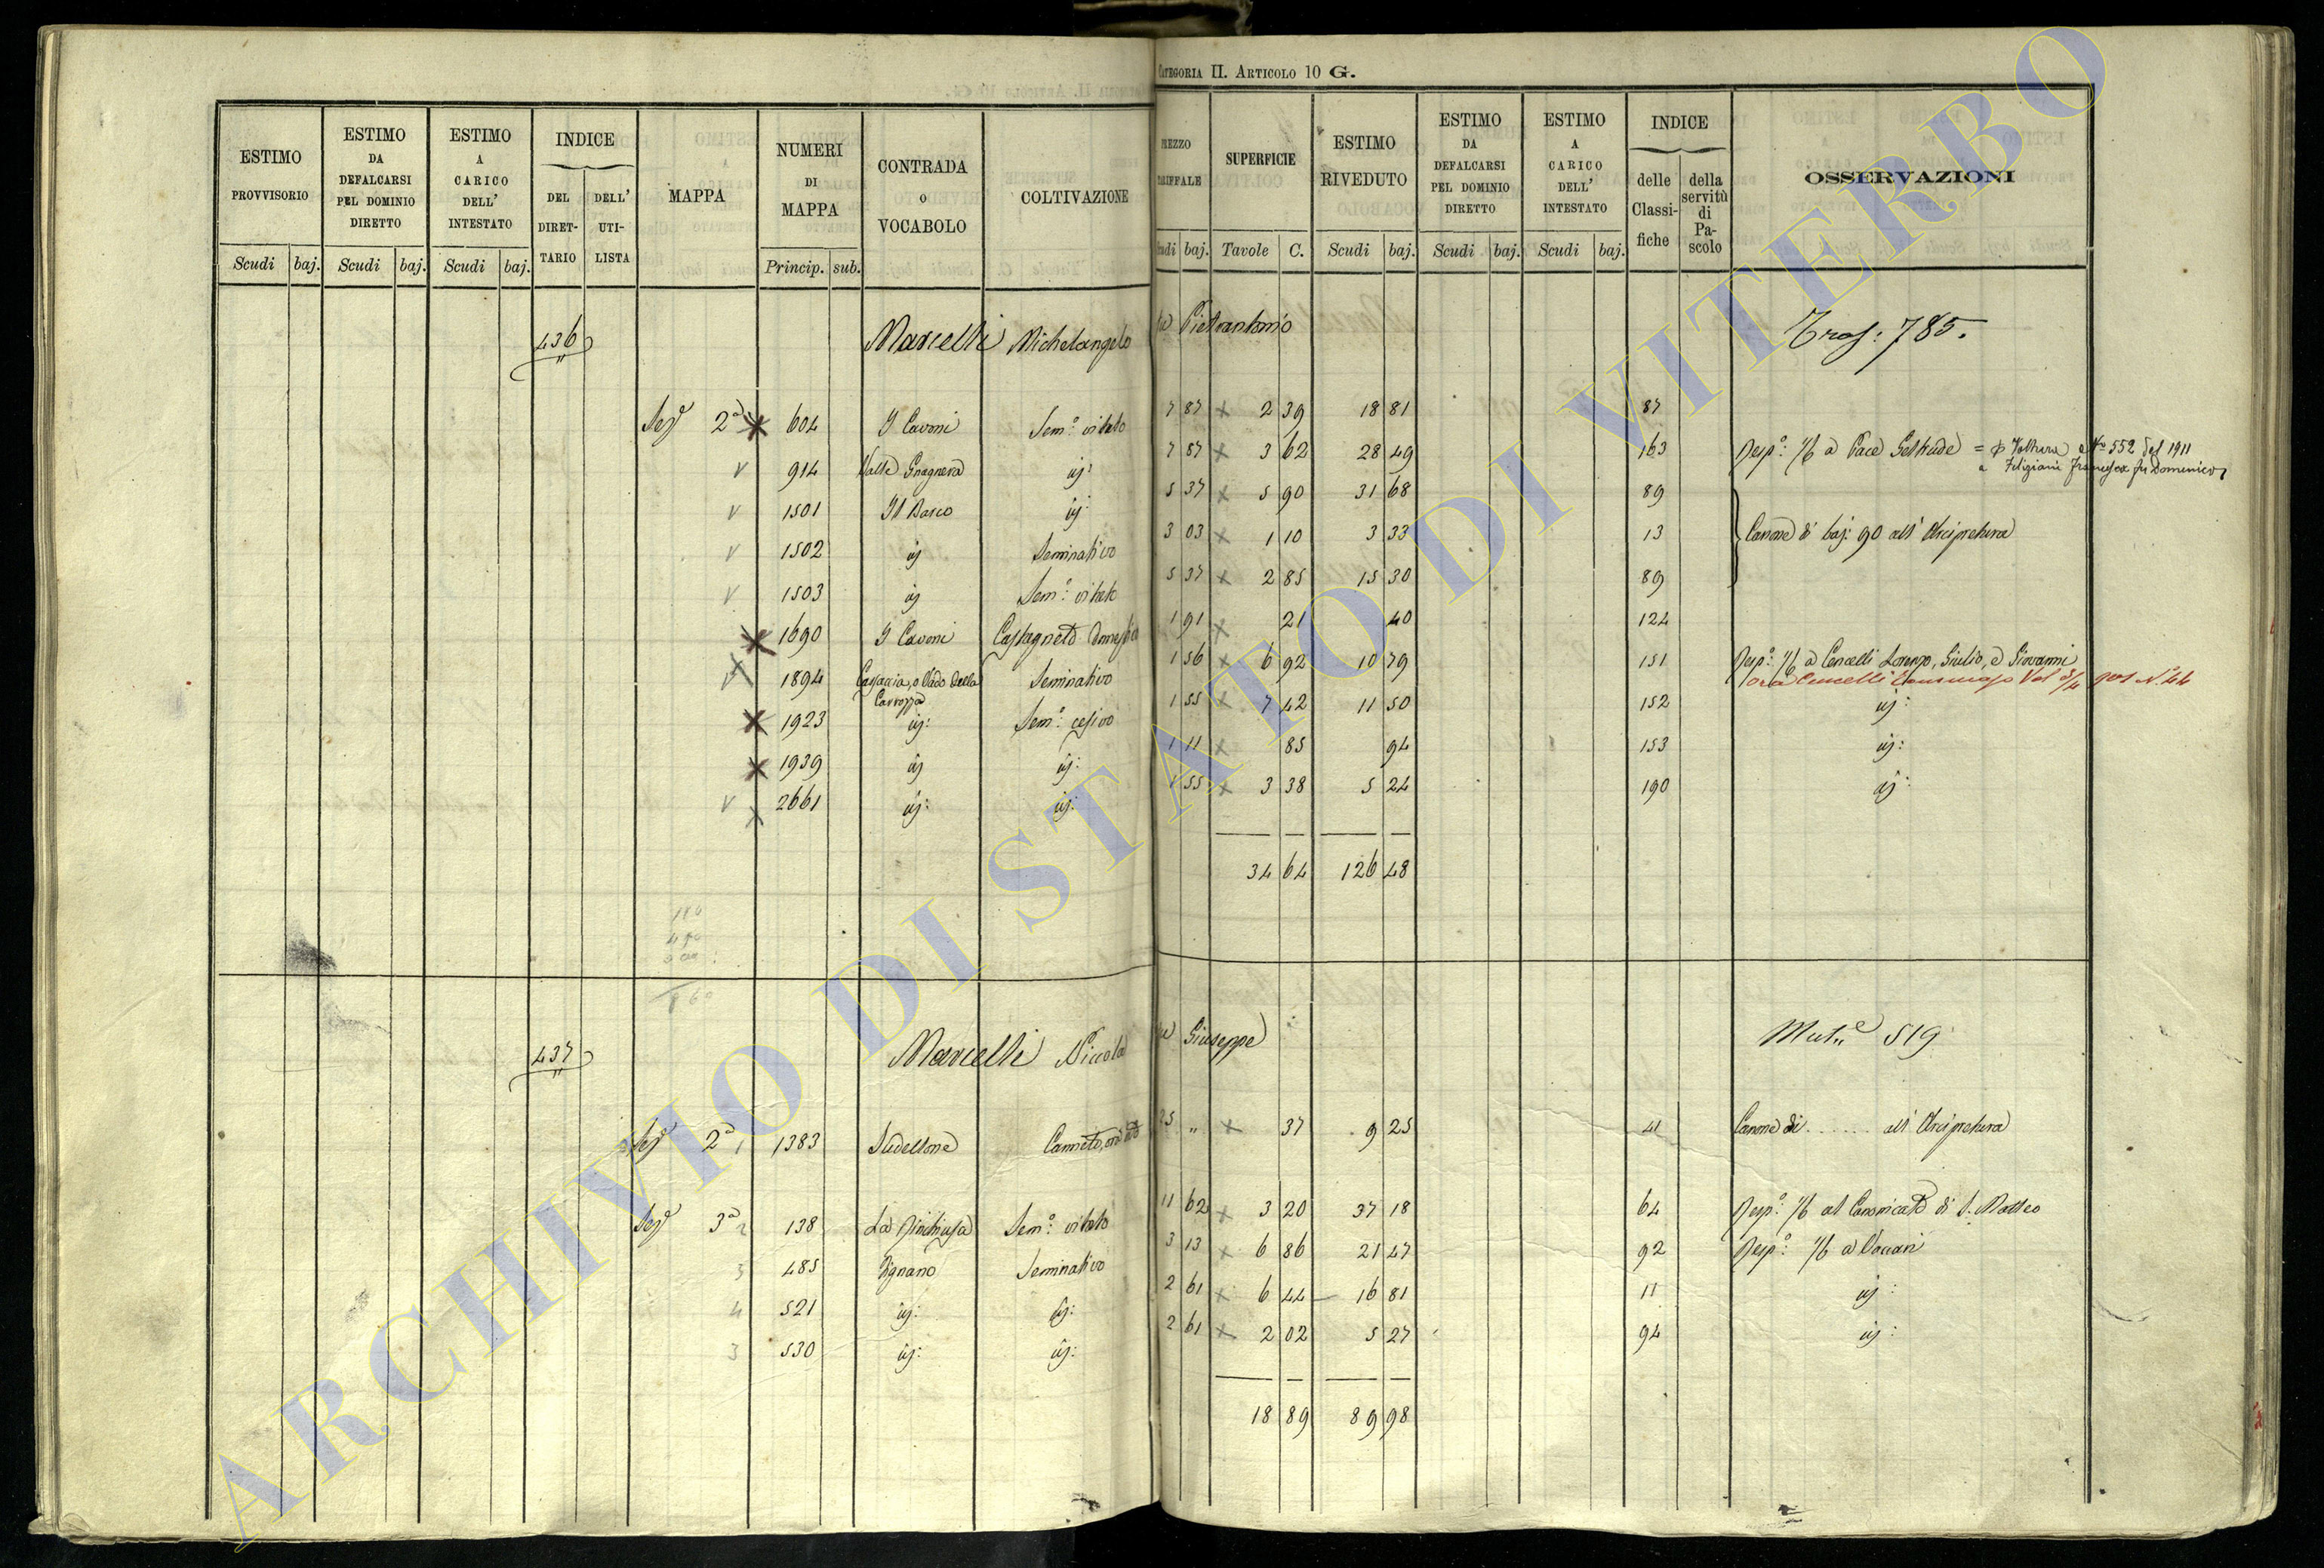 CATEGORIA II. ARTICOLO 10 G.
ESTIMO PROVVISORIO | ESTIMO DA DEFALCARSI PEL DOMINIO DIRETTO | ESTIMO A CARICO DELL' INTESTATO | INDICE DEL DIRETTARIO | DELL' UTILISTA | MAPPA | NUMERI DI MAPPA | CONTRADA O VOCABOLO | COLTIVAZIONE | PREZZO TARIFFALE | SUPERFICIE | ESTIMO RIVEDUTO | ESTIMO DA DEFALCARSI PEL DOMINIO DIRETTO | ESTIMO A CARICO DELL' INTESTATO | INDICE delle Classifiche | della servitù di Pascolo | OSSERVAZIONI
Scudi baj. Scudi baj. Scudi baj. Princip. sub. Scudi baj. Tavole C. Scudi baj. Scudi baj. Scudi baj.
436 Marcelli Michelangelo fu Pietrantonio Tras: 785.
Sez.e 2a 604 I Cavoni Sem.o vitato 7 87 2 39 18 81 87
914 Valle Gragnera id: 7 87 3 62 28 49 163 Resp.o 1/6 a Pace Geltrude = Φ Voltura No 552 del 1911
a Filigiani Francesca fu Domenico
1501 Il Barco id: 5 37 5 90 31 68 89
1502 id Seminativo 3 03 1 10 3 33 13 Canone di baj: 90 all' Arcipretura
1503 id Sem.o vitato 5 37 2 85 15 30 89
1690 I Cavoni Castagneto domestico 1 91 21 40 124
1894 Casaccia, o Vado della Carrozza Seminativo 1 56 6 92 10 79 151 Resp.o 1/6 a Cencelli Lorenzo, Giulio, e Giovanni
ora Cencelli Tommaso Vol. 901 N. 44
1923 id: Sem.o cesivo 1 55 7 42 11 50 152 id:
1939 id id: 1 11 85 94 153 id:
2661 id: id: 1 55 3 38 5 24 190 id:
34 64 126 48
437 Marcelli Niccola fu Giuseppe Mut.e 519
Sez.e 2a 1 1383 Sudellone Canneto, ord 25 " 37 9 25 41 Canone di . . . . . . all' Arcipretura
Sez.e 3a 2 138 La Rinchiusa Sem.o vitato 11 62 3 20 37 18 64 Resp.o 1/6 al Canonicato di S. Matteo
3 485 Rignano Seminativo 3 13 6 86 21 47 92 Resp.o 1/6 a Vaccari
4 521 id: id: 2 61 6 44 16 81 11 id:
3 530 id: id: 2 61 2 02 5 27 94 id:
18 89 89 98
ARCHIVIO DI STATO DI VITERBO